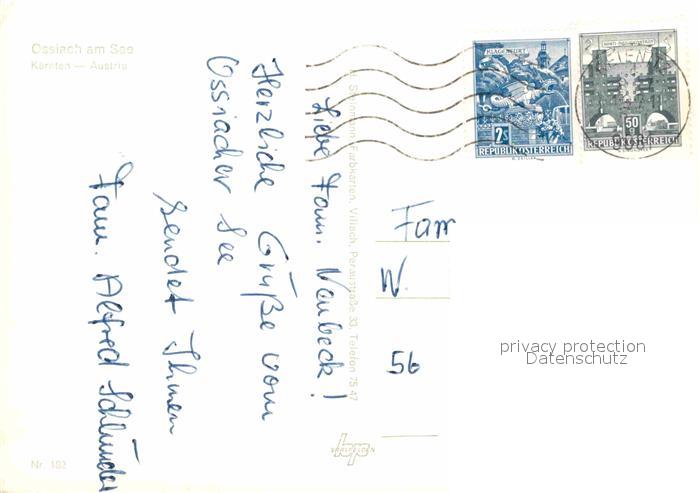 Ossiach am See
Kärnten — Austria
Liebe Fam. Neubeck!
Herzliche Grüße vom
Ossiacher See
sendet Ihnen
Fam. Alfred
Farbkarten, Villach, Peraustraße 33, Telefon 75 47
KLAGENFURT
2 S
REPUBLIK ÖSTERREICH
50 g
REPUBLIK ÖSTERREICH
Fam
W.
56
privacy protection
Datenschutz
bp
Nr. 182